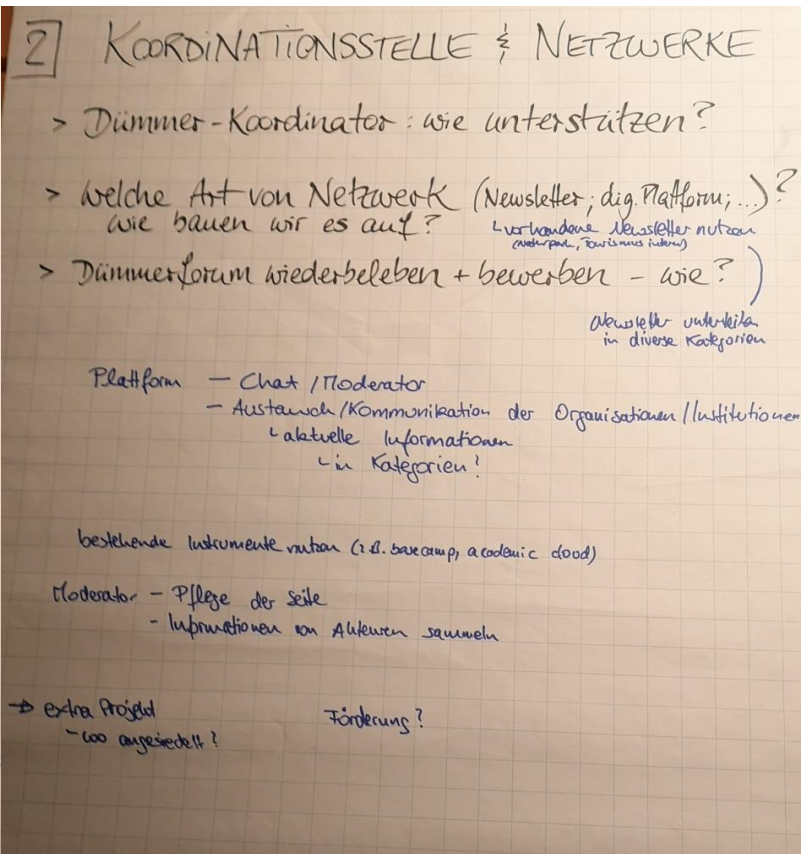 2 KOORDINATIONSSTELLE & NETZWERKE
> Dümmer-Koordinator: wie unterstützen?
> welche Art von Netzwerk (Newsletter; dig. Plattform; ...)?
wie bauen wir es auf?
↳ vorhandene Newsletter nutzen
(Naturpark, Tourismus intern)
> Dümmerforum wiederbeleben + bewerben - wie?
(Newsletter unterteilen
in diverse Kategorien
Plattform - Chat/Moderator
- Austausch/Kommunikation der Organisationen/Institutionen
↳ aktuelle Informationen
↳ in Kategorien!
bestehende Instrumente nutzen (z.B. basecamp, academic cloud)
Moderator - Pflege der Seite
- Informationen von Akteuren sammeln
→ extra Projekt
- wo angesiedelt?
Förderung?